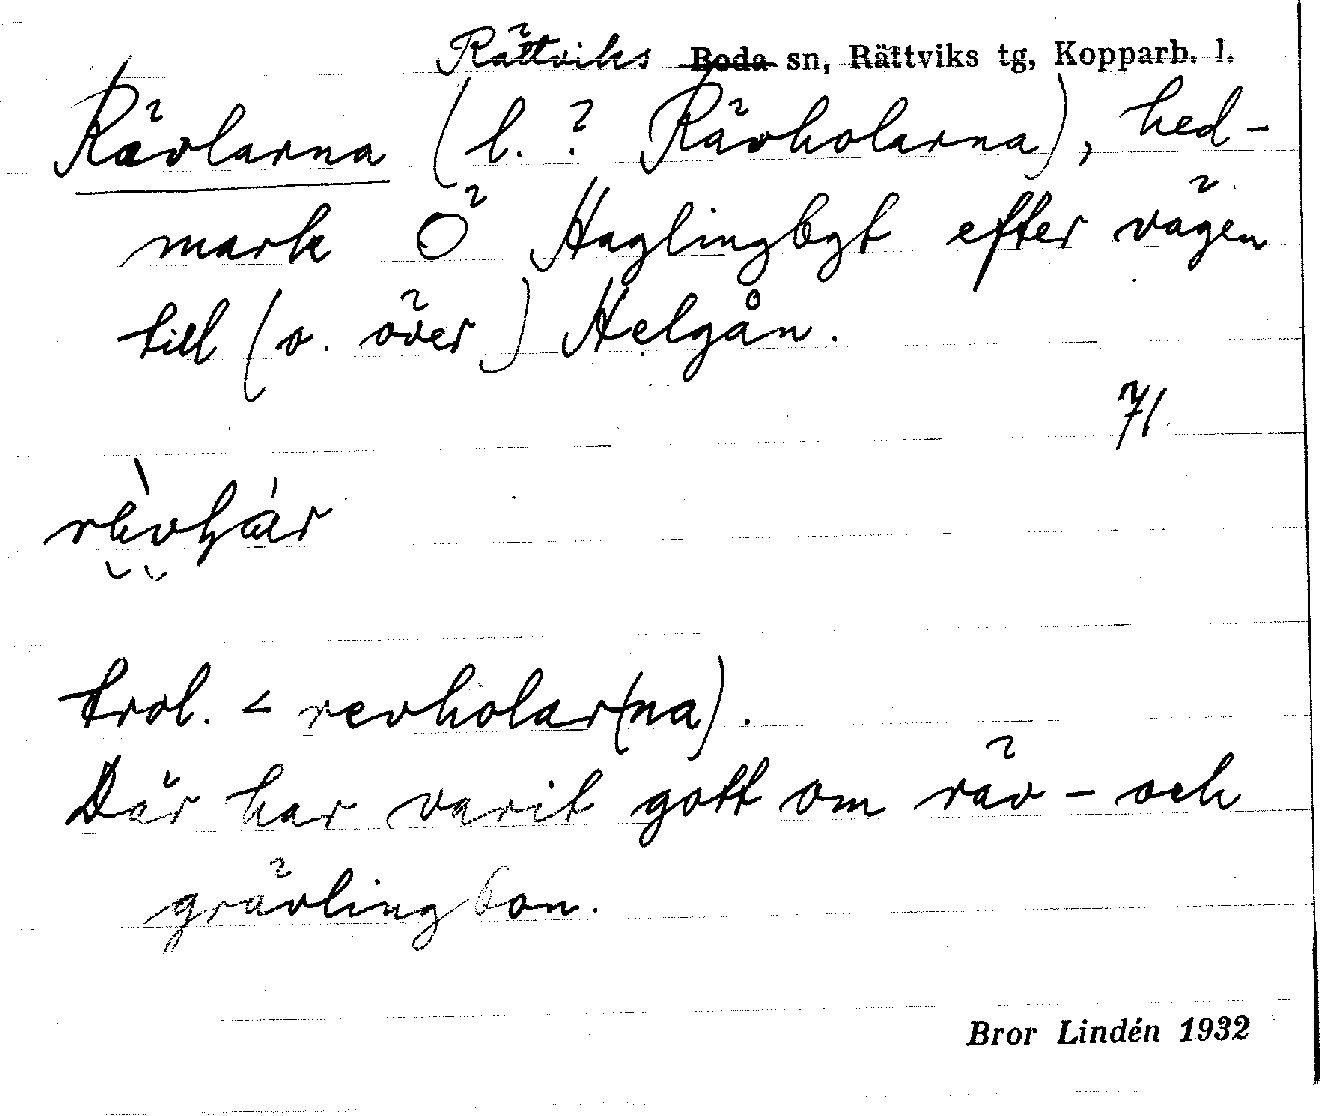 Rättviks Boda sn, Rättviks tg, Kopparb. l.
Rävlarna (l. ? Rävholarna), hed-
mark Ö Haglingbgt efter vägen
till (o. över) Helgån.
71
trol. < revholar(na).
Där har varit gott om räv- och
grävlingbon.
Bror Lindén 1932